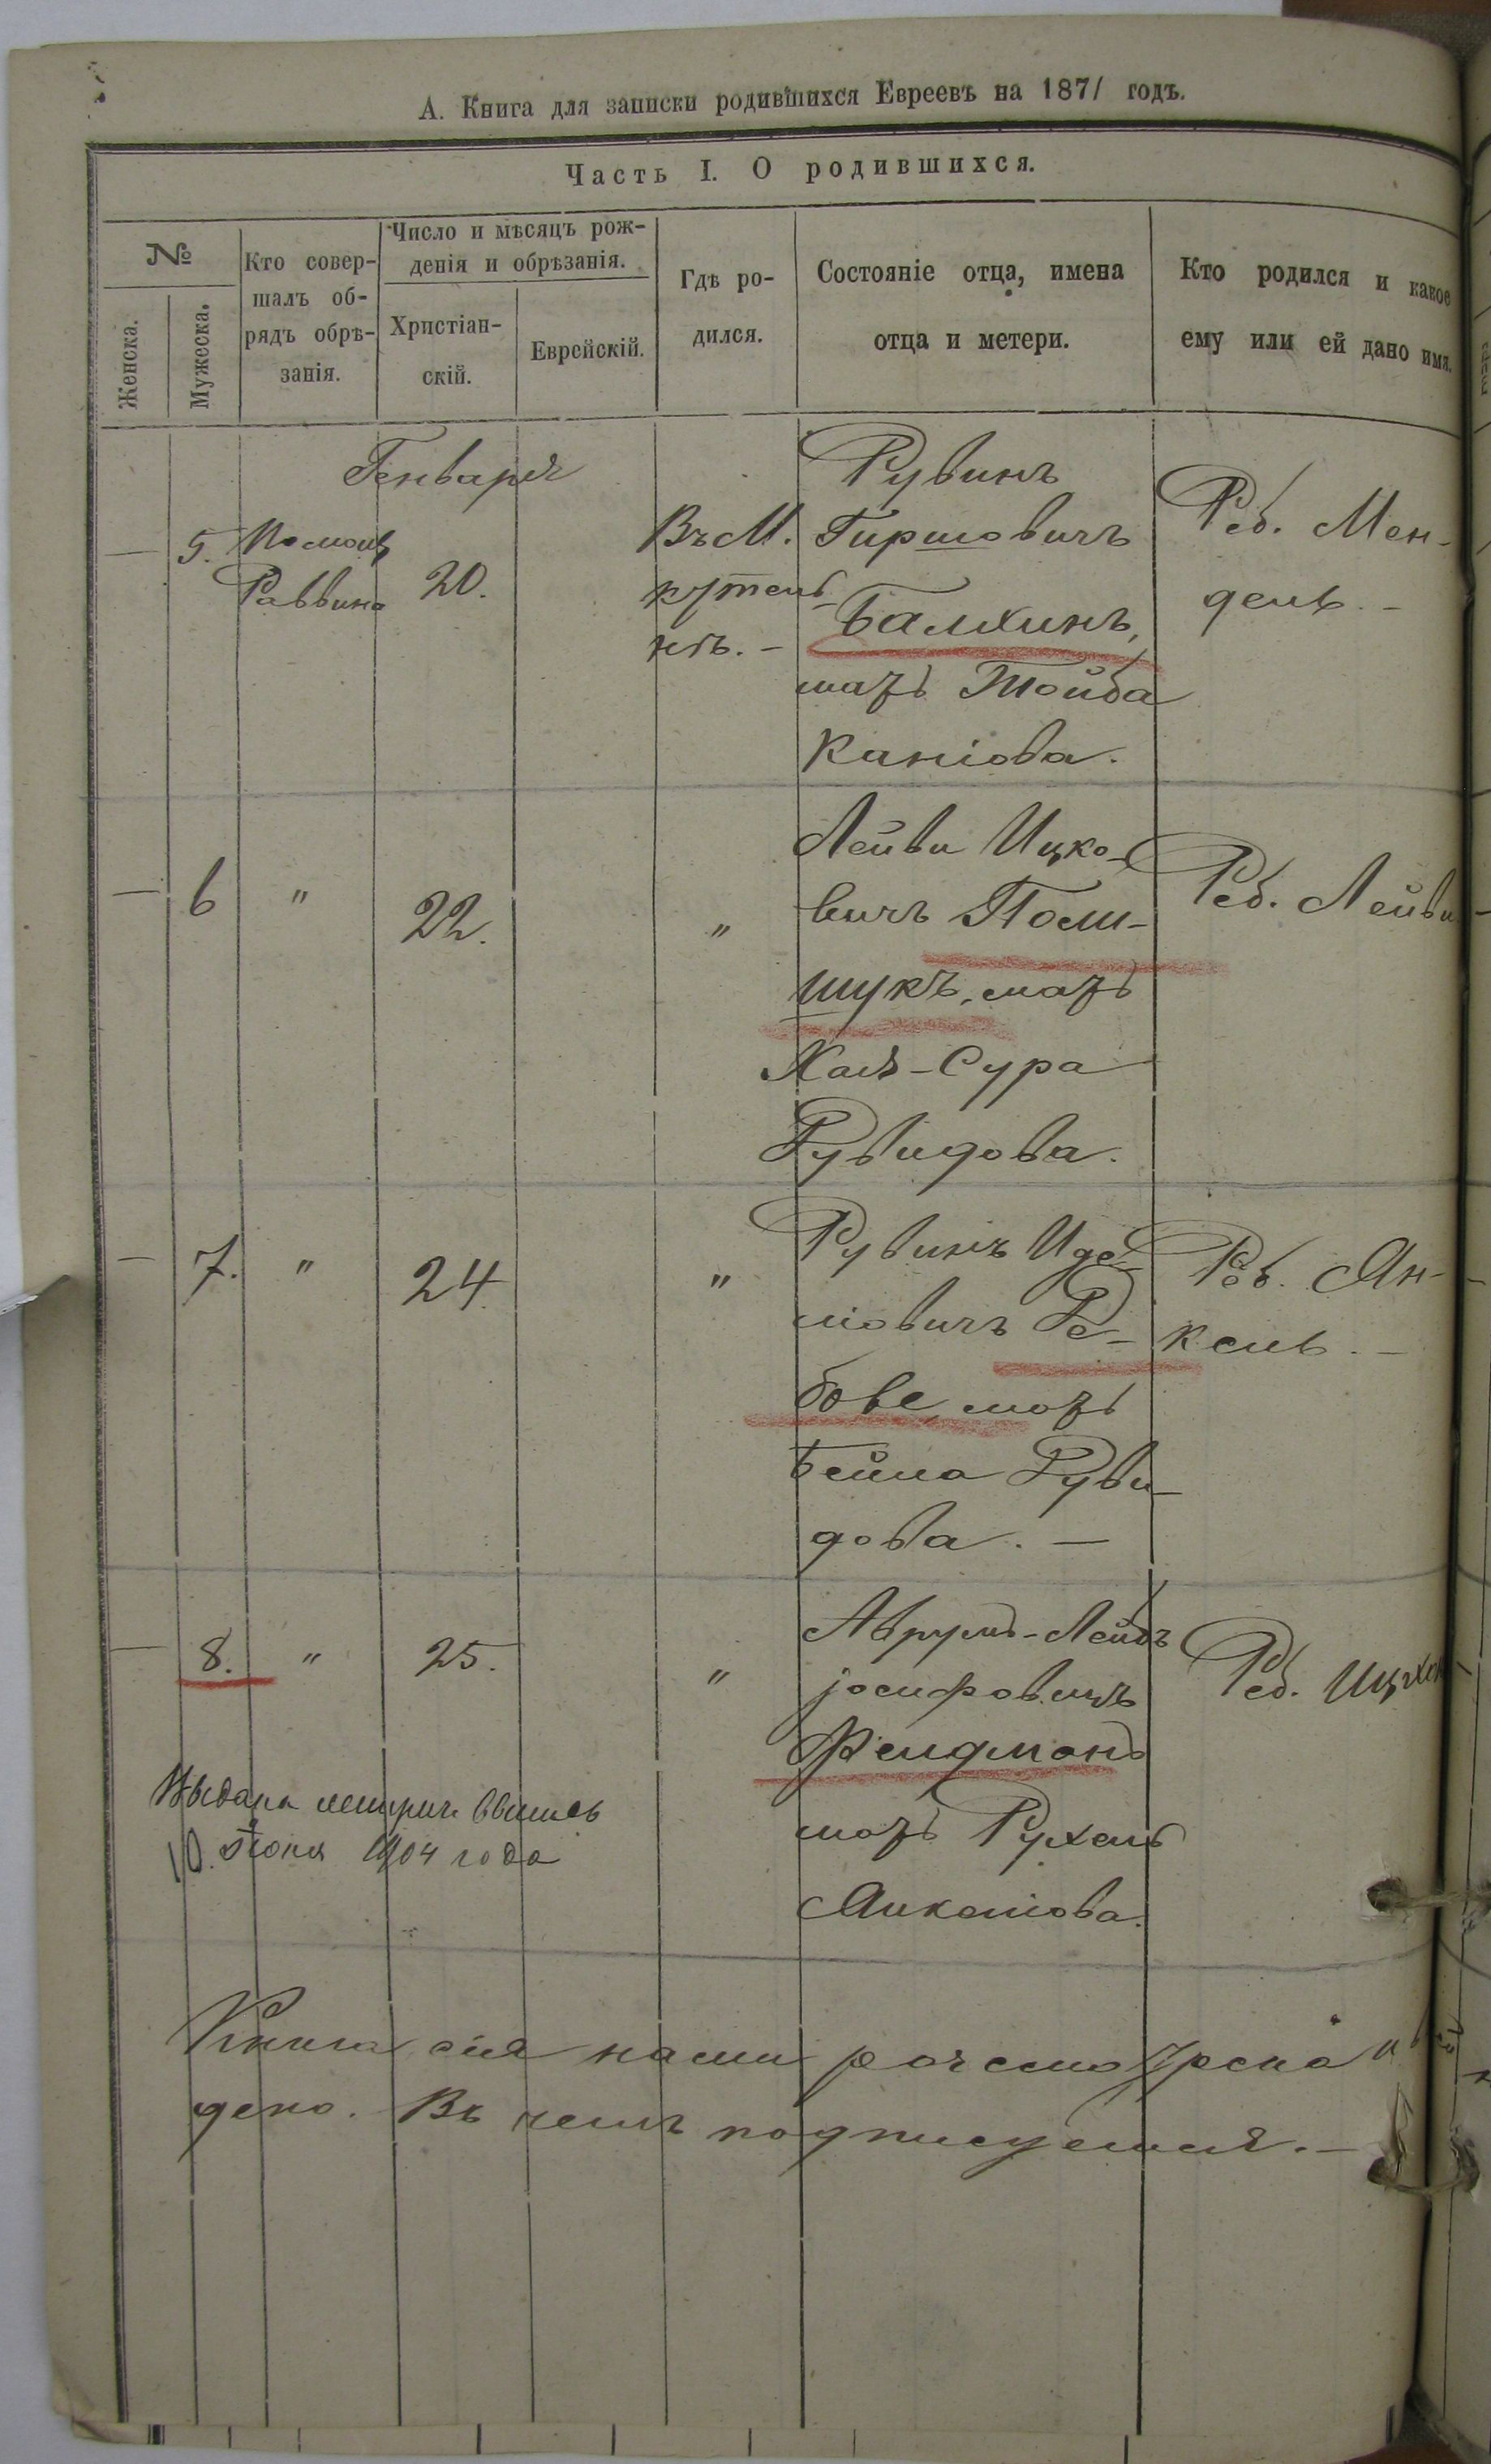 А. Книга для записки родившихся Евреевъ на 1871 годъ.
Часть I. О родившихся.
№
Женска.
Мужеска.
Кто совер-
шалъ об-
рядъ обрѣ-
занія.
Число и мѣсяцъ рож-
денія и обрѣзанія.
Христіан-
скій.
Еврейскій.
Гдѣ ро-
дился.
Состояніе отца, имена
отца и метери.
Кто родился и какое
ему или ей дано имя.
Генваря
— 5.
Раввина
20.
Въ М.
Рувинъ
Гиршовичъ
Балихинъ,
мать Тойба
Реб. Мен-
дель. —
— 6 " 22. "
Лейви Ицко-
вичъ Поли-
шукъ, мать
Хая-Сура
Рувидова.
Реб. Лейви
— 7. " 24 "
Рувинъ Иде-
ліовичъ Ре-
бове, мать
Бейла Руви-
дова. —
Реб. Ян-
кель. —
— 8. " 25. "
Аврумъ-Лейбъ
Јосифовичъ
Фелдманъ
мать Рухель
Анкеліова.
Реб. Ицхок
Выдана метрич. выпись
10. Іюня 1904 года
Книга сія нами разсмотрена и
дено. Въ чемъ подписуемся. —